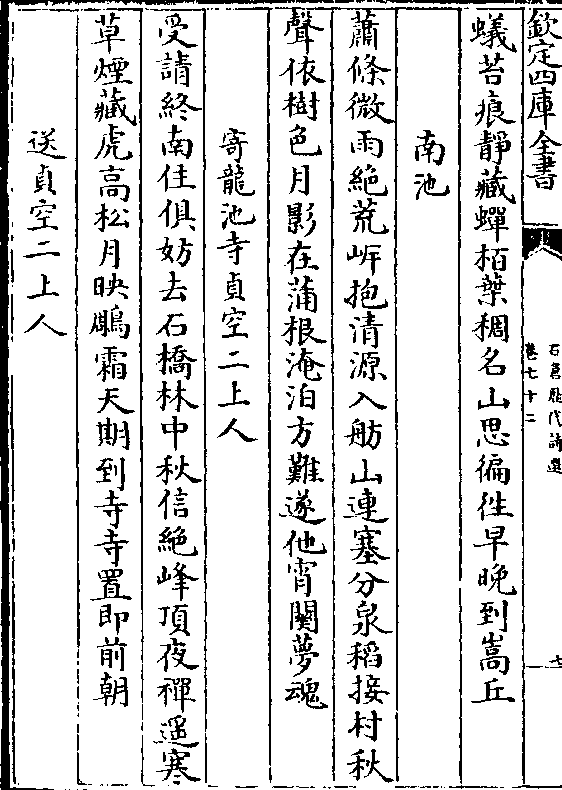 欽定四庫全書
石倉歴代詩選
卷七十二
七
蟻苔痕靜藏蟬栢葉稠名山思徧徃早晚到嵩丘
南池
蕭條微雨絶荒岍抱清源入舫山連塞分泉稻接村秋
聲依樹色月影在蒲根淹泊方難遂他宵闗夢魂
寄龍池寺貞空二上人
受請終南住俱妨去石橋林中秋信絶峰頂夜禪遥寒
草煙藏虎高松月映鵰霜天期到寺寺置即前朝
送貞空二上人